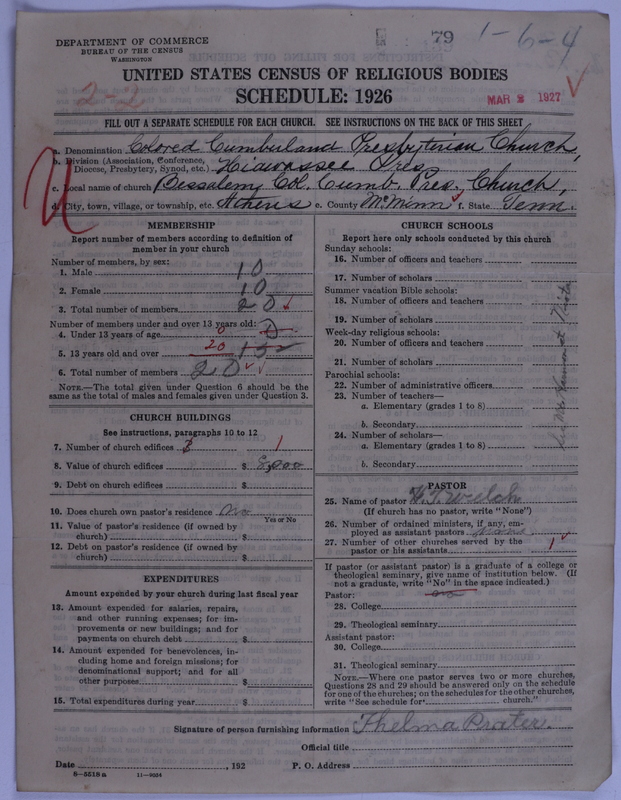 79
1-6-4
DEPARTMENT OF COMMERCE
BUREAU OF THE CENSUS
WASHINGTON
UNITED STATES CENSUS OF RELIGIOUS BODIES
2-2
SCHEDULE: 1926
MAR 2 1927
FILL OUT A SEPARATE SCHEDULE FOR EACH CHURCH. SEE INSTRUCTIONS ON THE BACK OF THIS SHEET
a. Denomination Colored Cumberland Presbyterian Church,
b. Division (Association, Conference, Diocese, Presbytery, Synod, etc.) Hiawassee Pres
c. Local name of church Bessalem, Col. Cumb. Pres. Church,
d. City, town, village, or township, etc. Athens e. County McMinn f. State Tenn.
MEMBERSHIP
Report number of members according to definition of
member in your church
Number of members, by sex:
1. Male 10
2. Female 10
3. Total number of members 20
Number of members under and over 13 years old:
4. Under 13 years of age 0
5. 13 years old and over 20
6. Total number of members 20
NOTE.—The total given under Question 6 should be the
same as the total of males and females given under Question 3.
CHURCH BUILDINGS
See instructions, paragraphs 10 to 12
7. Number of church edifices 1
8. Value of church edifices $
9. Debt on church edifices $
10. Does church own pastor's residence No
Yes or No
11. Value of pastor's residence (if owned by
church) $
12. Debt on pastor's residence (if owned by
church) $
EXPENDITURES
Amount expended by your church during last fiscal year
13. Amount expended for salaries, repairs,
and other running expenses; for im-
provements or new buildings; and for
payments on church debt $
14. Amount expended for benevolences, in-
cluding home and foreign missions; for
denominational support; and for all
other purposes $
15. Total expenditures during year $
CHURCH SCHOOLS
Report here only schools conducted by this church
Sunday schools:
16. Number of officers and teachers
17. Number of scholars
Summer vacation Bible schools:
18. Number of officers and teachers
19. Number of scholars
Week-day religious schools:
20. Number of officers and teachers
21. Number of scholars
Parochial schools:
22. Number of administrative officers
23. Number of teachers—
a. Elementary (grades 1 to 8)
b. Secondary
24. Number of scholars—
a. Elementary (grades 1 to 8)
b. Secondary
PASTOR
25. Name of pastor Welch
(If church has no pastor, write "None")
26. Number of ordained ministers, if any, em-
ployed as assistant pastors None
27. Number of other churches served by the
pastor or his assistants 1
If pastor (or assistant pastor) is a graduate of a college or
theological seminary, give name of institution below. (If
not a graduate, write "No" in the space indicated.)
Pastor:
28. College
29. Theological seminary
Assistant pastor:
30. College
31. Theological seminary
NOTE.—Where one pastor serves two or more churches,
Questions 28 and 29 should be answered only on the schedule
for one of the churches; on the schedules for the other churches,
write "See schedule for church."
Signature of person furnishing information Thelma Prater.
Official title
Date , 192 P. O. Address
8—5518 a 11—9034